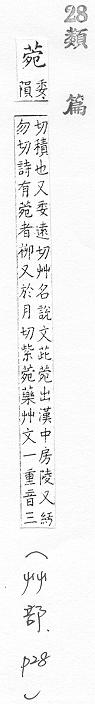 28 類篇
菀 委隕
切積也又委遠切艸名說文茈菀出漢中房陵又紆
勿切詩有菀者柳又於月切紫菀藥艸文一重音三
(艸部. p28)